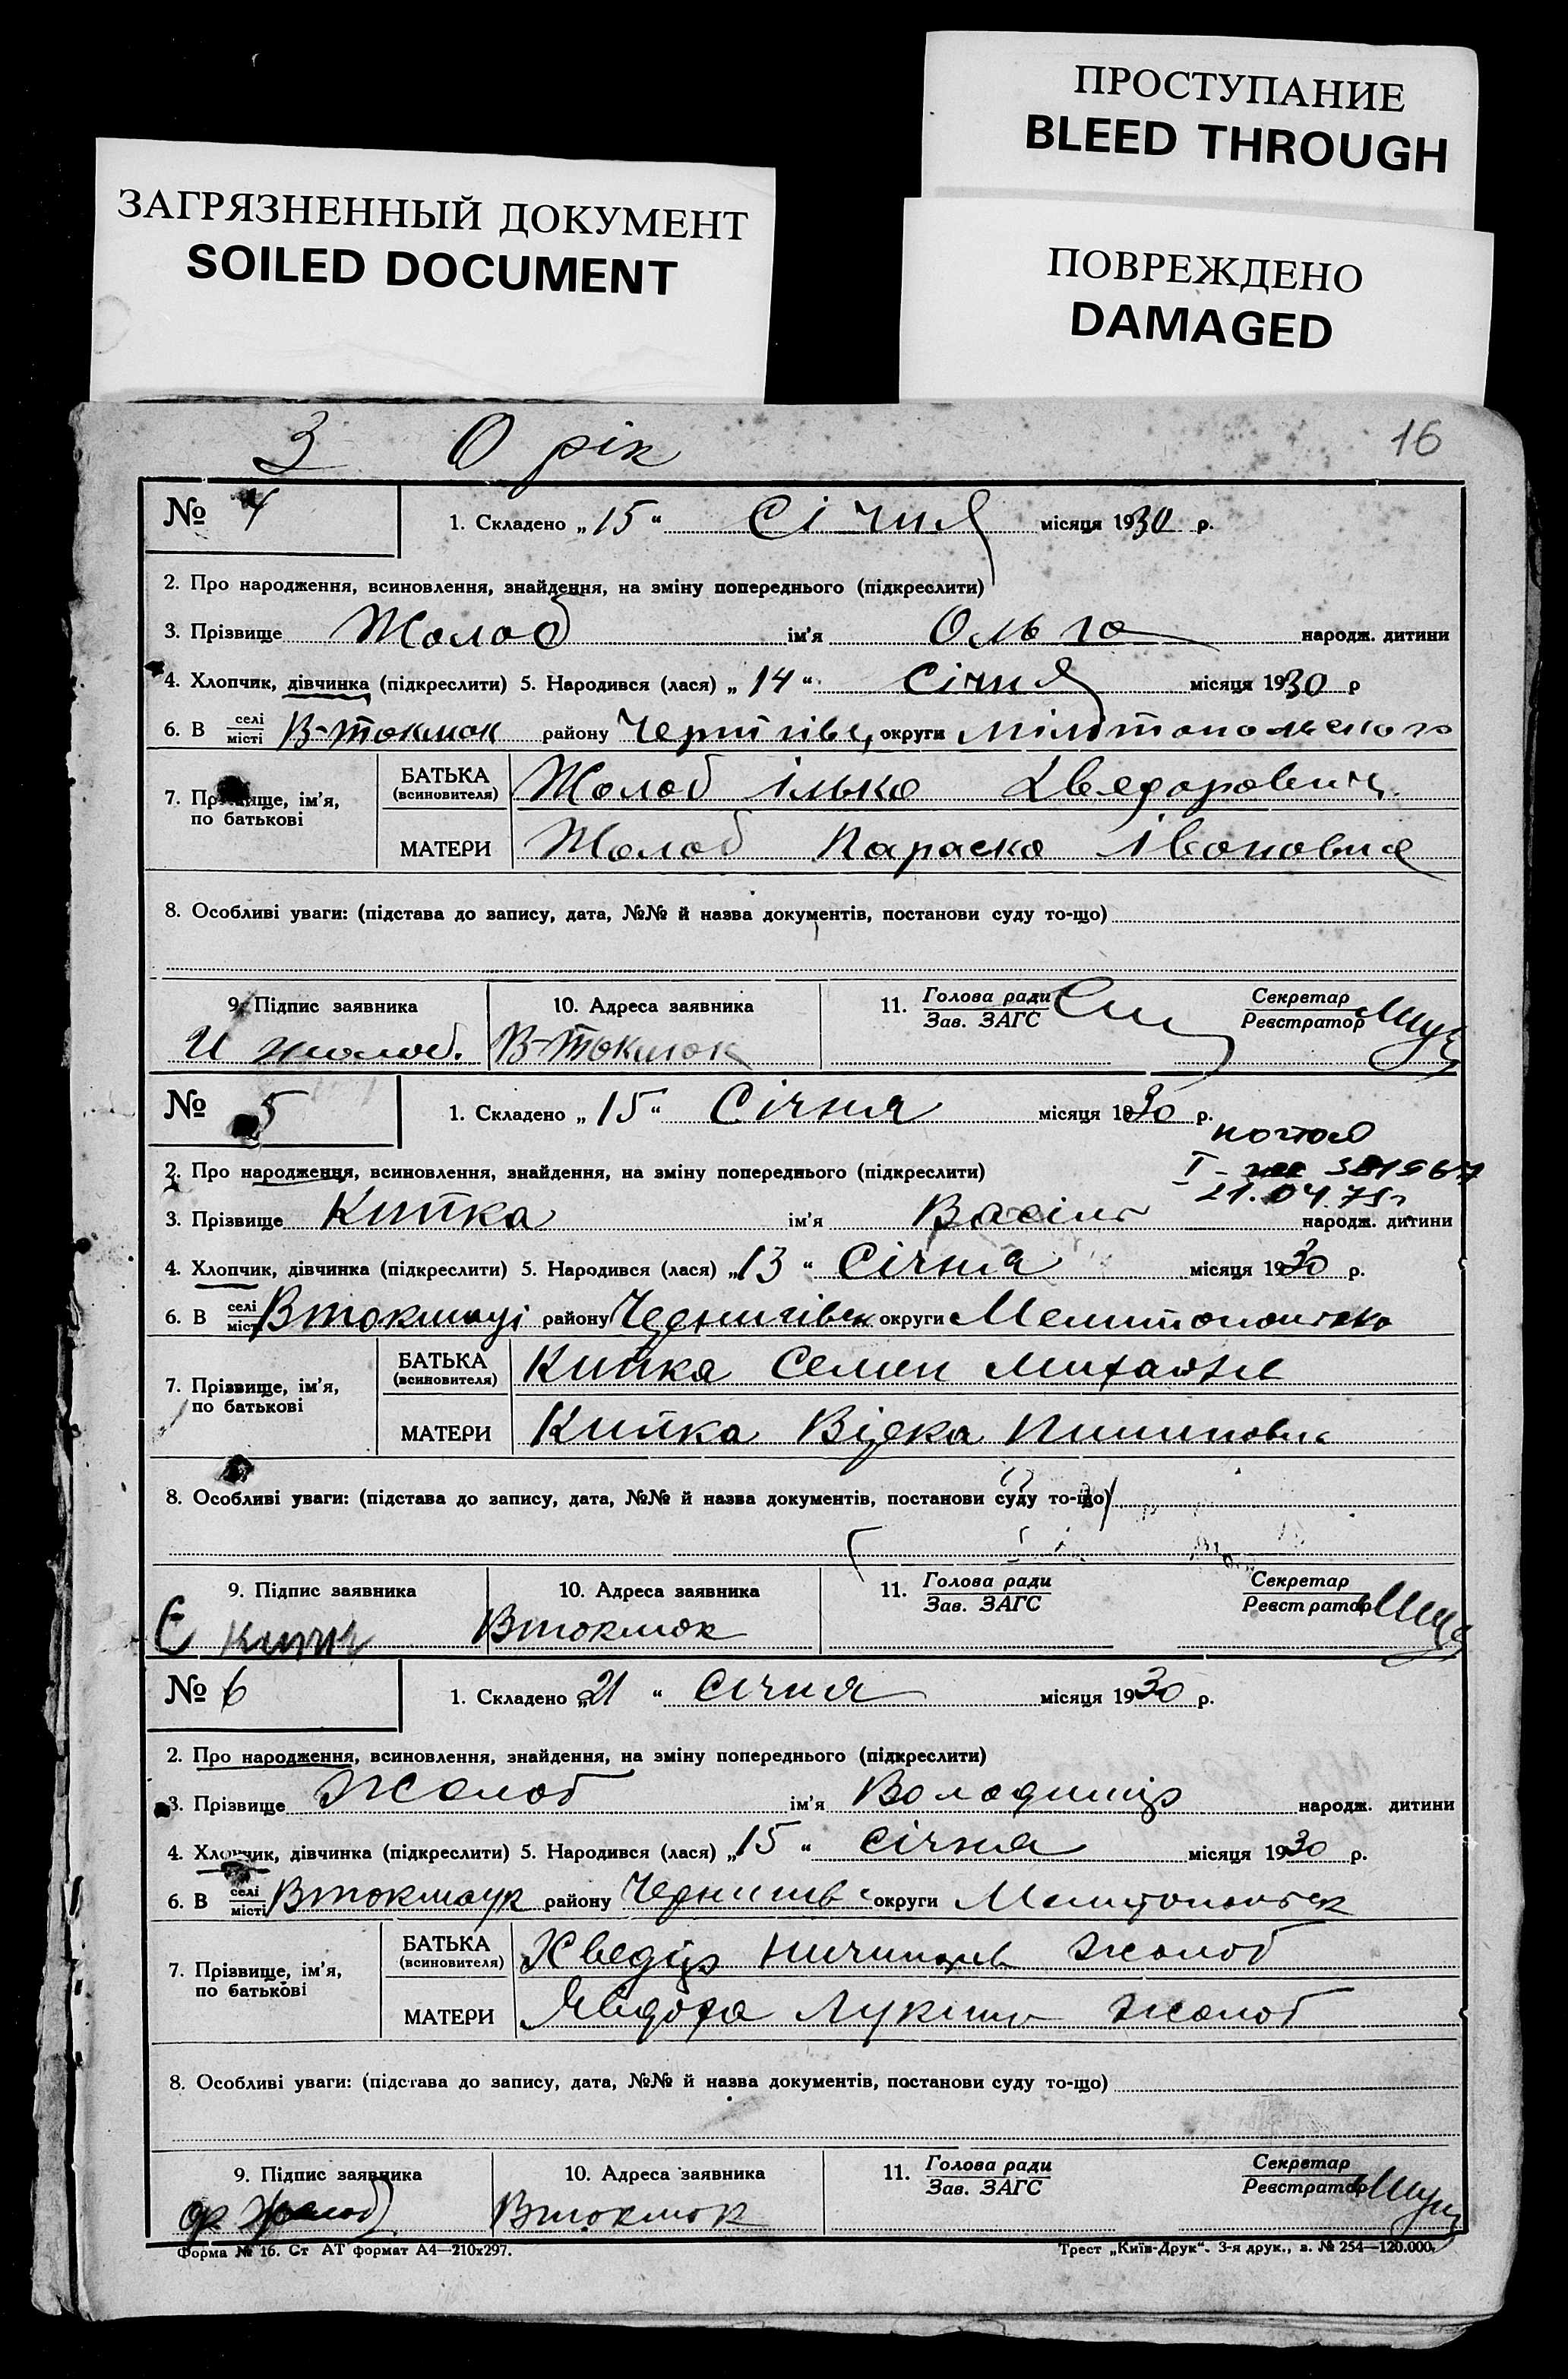 ПРОСТУПАНИЕ
BLEED THROUGH
ЗАГРЯЗНЕННЫЙ ДОКУМЕНТ
SOILED DOCUMENT
ПОВРЕЖДЕНО
DAMAGED
3 0 рік
16
№ 4
1. Складено „15“ Січня місяця 1930 р.
2. Про народження, всиновлення, знайдення, на зміну попереднього (підкреслити)
3. Прізвище Жолоб ім'я Ольга народж. дитини
4. Хлопчик, дівчинка (підкреслити) 5. Народився (лася) „14“ Січня місяця 1930 р
6. В селі/місті В-Токмок району Чернігівс. округи Мілітопольского
7. Прізвище, ім'я, по батькові
БАТЬКА (всиновителя) Жолоб Ілько Хведорович
МАТЕРИ Жолоб Параска Івановна
8. Особливі уваги: (підстава до запису, дата, №№ й назва документів, постанови суду то-що)
9. Підпис заявника 10. Адреса заявника 11. Голова ради/Зав. ЗАГС Секретар/Реєстратор
И жолоб. В-Токмок
№ 5
1. Складено „15“ Січня місяця 1930 р.
2. Про народження, всиновлення, знайдення, на зміну попереднього (підкреслити)
21.04.75г.
3. Прізвище Китка ім'я Васіль народж. дитини
4. Хлопчик, дівчинка (підкреслити) 5. Народився (лася) „13“ Січня місяця 1930 р.
6. В селі/місті Втокмаці району Чернигівск округи
7. Прізвище, ім'я, по батькові
БАТЬКА (всиновителя) Китка Семен
МАТЕРИ Китка
8. Особливі уваги: (підстава до запису, дата, №№ й назва документів, постанови суду то-що)
9. Підпис заявника 10. Адреса заявника 11. Голова ради/Зав. ЗАГС Секретар/Реєстратор
Втокмок
№ 6
1. Складено „21“ Січня місяця 1930 р.
2. Про народження, всиновлення, знайдення, на зміну попереднього (підкреслити)
3. Прізвище Жолоб ім'я Володимір народж. дитини
4. Хлопчик, дівчинка (підкреслити) 5. Народився (лася) „15“ січня місяця 1930 р.
6. В селі/місті району округи
7. Прізвище, ім'я, по батькові
БАТЬКА (всиновителя) Хведір Жолоб
МАТЕРИ Явдоха Жолоб
8. Особливі уваги: (підстава до запису, дата, №№ й назва документів, постанови суду то-що)
9. Підпис заявника 10. Адреса заявника 11. Голова ради/Зав. ЗАГС Секретар/Реєстратор
Втокмок
Форма № 16. Ст АТ формат А4—210х297. Трест „Київ-Друк“. 3-я друк., з. № 254—120.000.